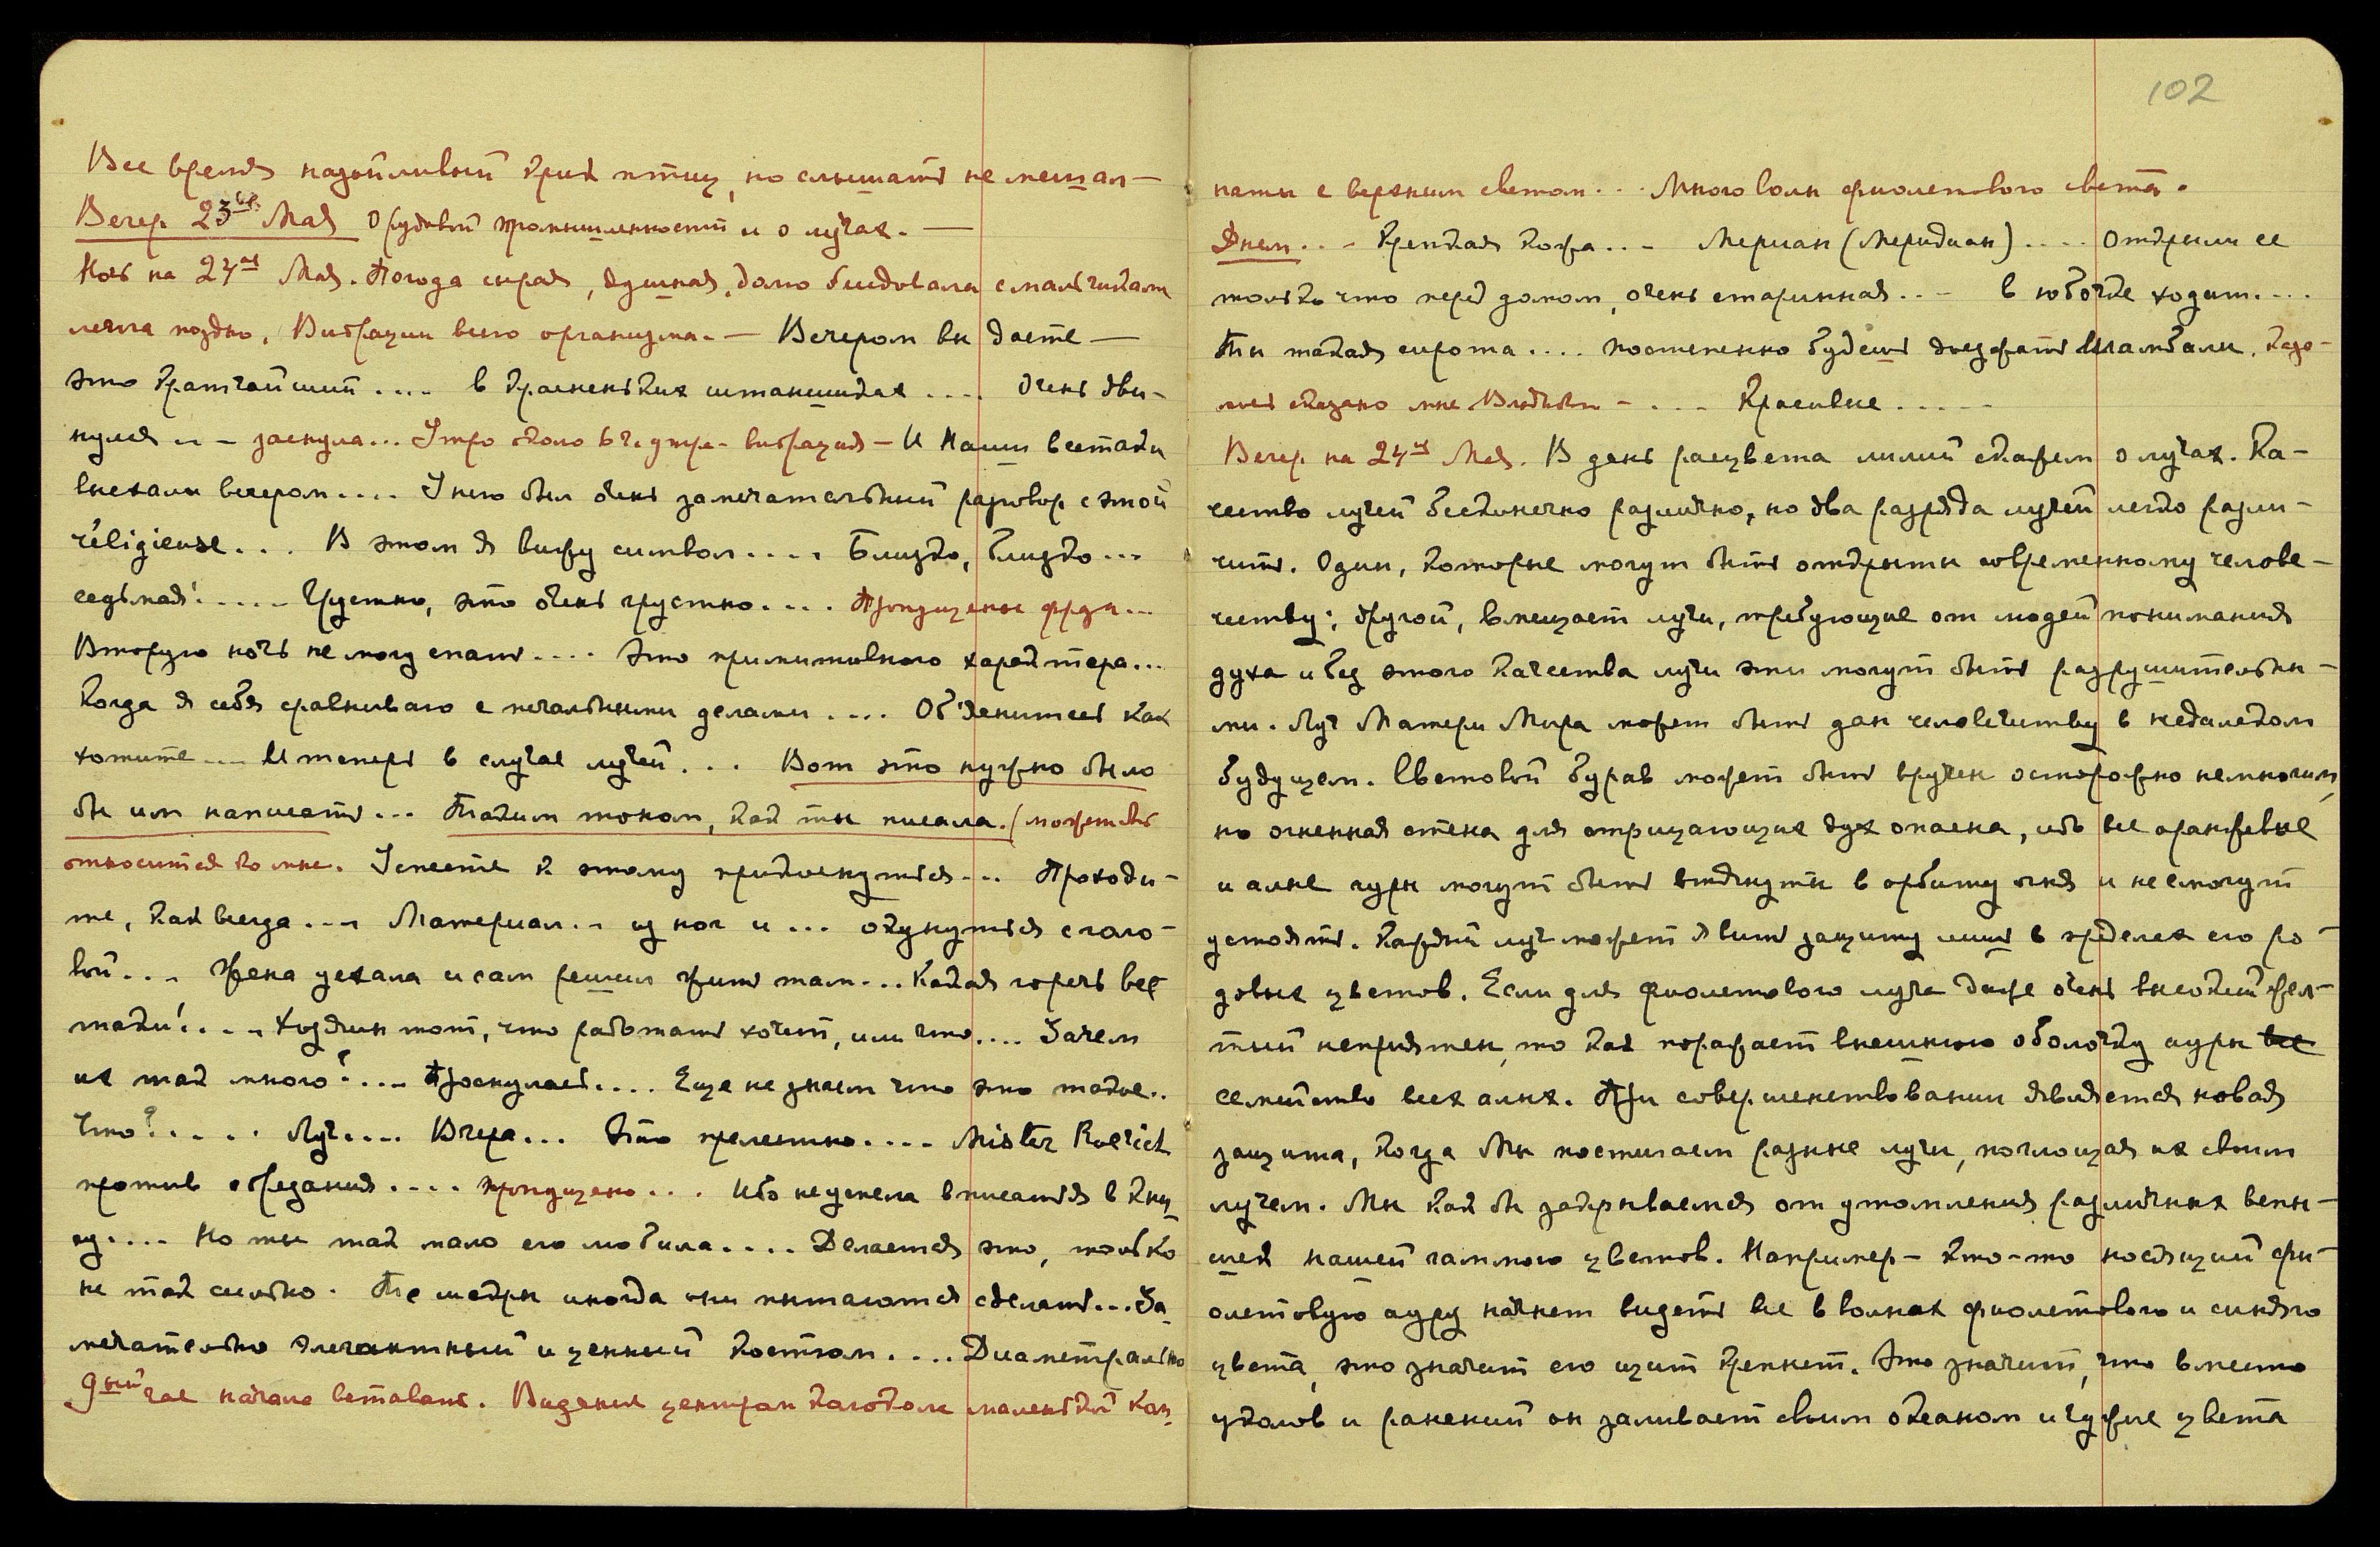 Все время назойливый крик птиц, но слышать не мешал —
Вечер 23го Мая О рудовой промышленности и о лучах. —
Ночь на 24ое Мая. Погода сырая, душная, долго беседовали с мальчиками
легла поздно, Вибрации всего организма. — Вечером вы даете —
это кратчайший .... в красненьких штанишках .... Очень дви-
нулся .. – заснула... Утро около 6 ч. утра – вибрация – И Наши всетаки
въехали вечером .... У него был очень замечательный разговор с этой
réligieuse... В этом я вижу символ .... Близко, близко ...
седьмая! .... Грустно, это очень грустно .... Пропущены фразы ...
Вторую ночь не могу спать .... Это примитивного характера...
Когда я себя сравниваю с печальными делами .... Об'яснитесь как
хотите ... И теперь в случае лучей ... Вот это нужно было
бы им написать ... Таким током, как ты писала. (может быть
относится ко мне. Успеете к этому прикоснуться ... Проходи-
те, как всегда ... Материал .. из ног и ... окунуться с голо-
вой ... Жена уехала и сам решил жить там ... Какая горечь все
таки! .... Хозяин тот, что работать хочет, или что .... Зачем
их так много? .... Проснулась .... Еще не знаем что это такое..
Что? ..... Луч .... Вчера ... Это прелестно .... Mister Roerich
против обрезания .... пропущено ... Ибо не успела вписаться в кни-
гу .... Но ты так мало его любила .... Делается это, только
не так сильно. Те шатры иногда они пытаются сделать ... За-
мечательно элегантный и ценный костюм .... Диаметрально
9ый час начало вставать. Видения центрам колоколы маленький кан,
102
наты с верхним светом ... Много волн фиолетового света.
Днем .. – Крепкая кожа .. – Мериан (Меридиан) .... Открыли ее
только что перед домом, очень старинная .. – в юбочке ходит ....
Ты такая сирота .... постепенно будешь доезжать Шамбалы. каза-
лось сказано мне Владыкой – .... Красивые .....
Вечер на 24ое Мая. В день расцвета лилий скажем о лучах. Ка-
чество лучей бесконечно различно, но два разряда лучей легко разли-
чить. Один, которые могут быть открыты современному челове-
честву; другой, вмещает лучи, требующие от людей понимания
духа и без этого качества лучи эти могут быть разрушительны-
ми. Луч Матери Мира может быть дан человечеству в недалеком
будущем. Световой бурав может быть вручен осторожно немногим,
но огненная стена для отрицающих дух опасна, ибо все оранжевые
и алые ауры могут быть втянуты в орбиту огня и не смогут
устоять. Каждый луч может явить защиту лишь в пределах его ро-
довых цветов. Если для фиолетового луча даже очень высокий жел-
тый неприятен, то как поражает внешнюю оболочку ауры все
семейство всех алых. При совершенствовании является новая
защита, когда Мы постигаем разные лучи, поглощая их своим
лучем. Мы как бы закрываемся от утомления различных вспы-
шек нашей гаммою цветов. Например – кто-то носящий фи-
олетовую ауру начнет видеть все в волнах фиолетового и синяго
цвета, это значит его щит крепнет. Это значит, что вместо
уколов и ранений он заливает своим океаном и чужие цвета